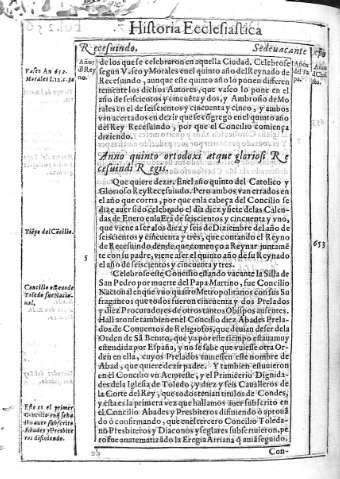 Historia Ecclesiastica
Recesuindo. Sedeuacante
Años del Rey no.
Años del Pa pa.
Año del Christo.
Vaseo An 652.
Morales l.12.c.30
de los que se celebraron en aquella Ciudad. Celebrose
segun Vaseo y Morales en el quinto año del Reynado de
Recesuindo, aunque este quinto año lo ponen differen
temente los dichos Autores, que vaseo lo pone en el
año de seiscientos y cincuenta y dos, y Ambrosio de Mo
rales en el de seiscientos y cincuenta y cinco, y ambos
van acertados en dezir que se congrego en el quinto año
del Rey Recesuindo, por que el Concilio comiença
diziendo.
Anno quinto ortodoxi atque gloriosi Re
cesuindi Regis.
Que quiere dezir. En el año quinto del Catolico y
Glorioso Rey Recesuindo. Pero ambos van errados en
el año que corria, por que en la cabeça del Concilio se
dize auer sido celebrado el dia diez y siete de las Calen
das de Enero en la Era de seiscientos y cincuenta y vno,
que viene a ser a los diez y seis de Diziembre del año de
seiscientos y cincuenta y tres, que contando el Reyno
de Recesuindo desde que començo a Reynar juntamē
te con su padre, viene a ser el quinto año de su Reynado
el año de seiscientos y cincuenta y tres.
Tiēpo del Cōcilio.
5
653
Celebrose este Concilio estando vacante la Silla de
San Pedro por muerte del Papa Martino, fue Concilio
Nacional en que vuo quatro Metropolitanos con sus Su
fraganeos que todos fueron cincuenta y dos Prelados
y diez Procuradores de otros tantos Obispos ausentes.
Hallaronse tambien en el Concilio diez Abades Prela-
dos de Conuentos de Religiosos, que deuian de ser de la
Orden de Sā Benito, que ya por este tiempo estaua muy
estendida por España, y no se sabe que vuiesse otra Or-
den en ella, cuyos Prelados tuuiessen este nombre de
Abad, que quiere dezir padre. Y tambien estuuieron
en el Concilio vn Arcipreste, y el Primicerio Dignida-
des de la Iglesia de Toledo, y diez y seis Caualleros de
la Corte del Rey, que todos tenian titulos de Condes,
y esta es la primera vez que hallamos auer subscrito en
el Concilio Abades y Presbiteros difiniendo ò aprouā
dò ò confirmando, que en el tercero Concilio Toleda-
no Presbiteros y Diaconos y seglares subscriuieron, pe
ro fue anatematizādo la Eregia Arriana q̄ auiā seguido.
Concilio
Toledo fue Nacio-
nal.
Este es el primer
Concilio en q̄ se ha
lla auer subscrito
Abades y Presbite-
ros difiniendo.
Con-